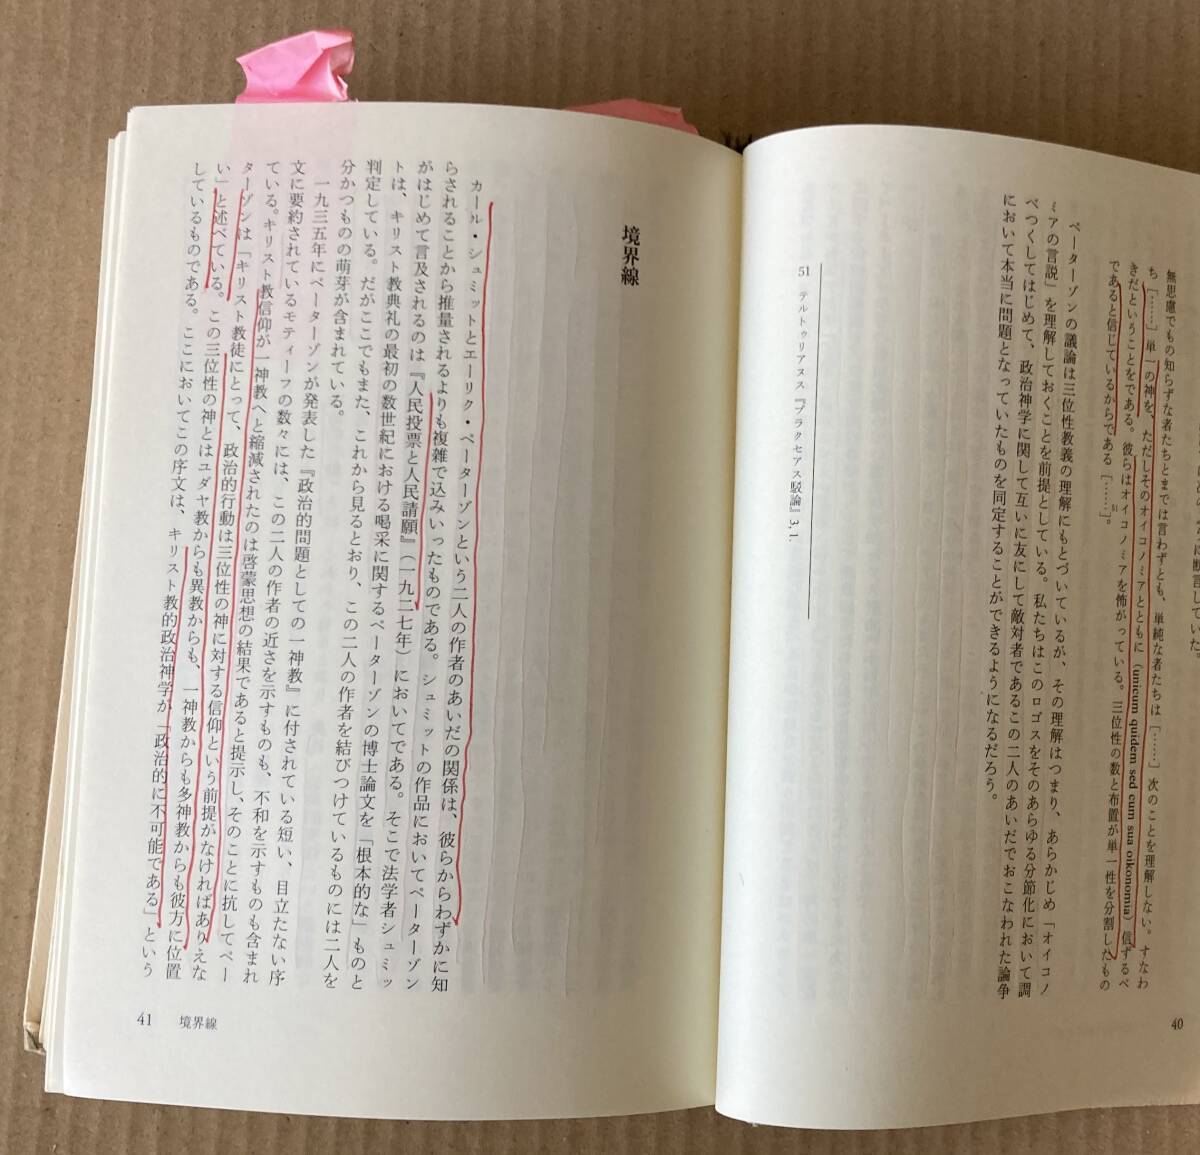 に断言していた。
無思慮でもの知らずな者たちとまでは言わずとも、単純な者たちは[……]次のことを理解しない。すなわ
ち[……]単一の神を、ただしそのオイコノミアとともに(unicum quidem sed cum sua oikonomia)信ずるべ
きだということをである。彼らはオイコノミアを怖がっている。三位性の数と布置が単一性を分割したもの
であると信じているからである[……]。51
ペーターゾンの議論は三位性教義の理解にもとづいているが、その理解はつまり、あらかじめ「オイコノ
ミアの言説」を理解しておくことを前提としている。私たちはこのロゴスをそのあらゆる分節化において調
べつくしてはじめて、政治神学に関して互いに友にして敵対者であるこの二人のあいだでおこなわれた論争
において本当に問題となっていたものを同定することができるようになるだろう。
51 テルトゥリアヌス『プラクセアス駁論』3, 1.
40
境界線
カール・シュミットとエーリク・ペーターゾンという二人の作者のあいだの関係は、彼らからわずかに知
らされることから推量されるよりも複雑で込みいったものである。シュミットの作品においてペーターゾン
がはじめて言及されるのは『人民投票と人民請願』(一九二七年)においてである。そこで法学者シュミッ
トは、キリスト教典礼の最初の数世紀における喝采に関するペーターゾンの博士論文を「根本的な」ものと
判定している。だがここでもまた、これから見るとおり、この二人の作者を結びつけているものには二人を
分かつものの萌芽が含まれている。
一九三五年にペーターゾンが発表した『政治的問題としての一神教』に付されている短い、目立たない序
文に要約されているモティーフの数々には、この二人の作者の近さを示すものも、不和を示すものも含まれ
ている。キリスト教信仰が一神教へと縮減されたのは啓蒙思想の結果であると提示し、そのことに抗してペー
ターゾンは「キリスト教徒にとって、政治的行動は三位性の神に対する信仰という前提がなければありえな
い」と述べている。この三位性の神とはユダヤ教からも異教からも、一神教からも多神教からも彼方に位置
しているものである。ここにおいてこの序文は、キリスト教的政治神学が「政治的に不可能である」という
41 境界線